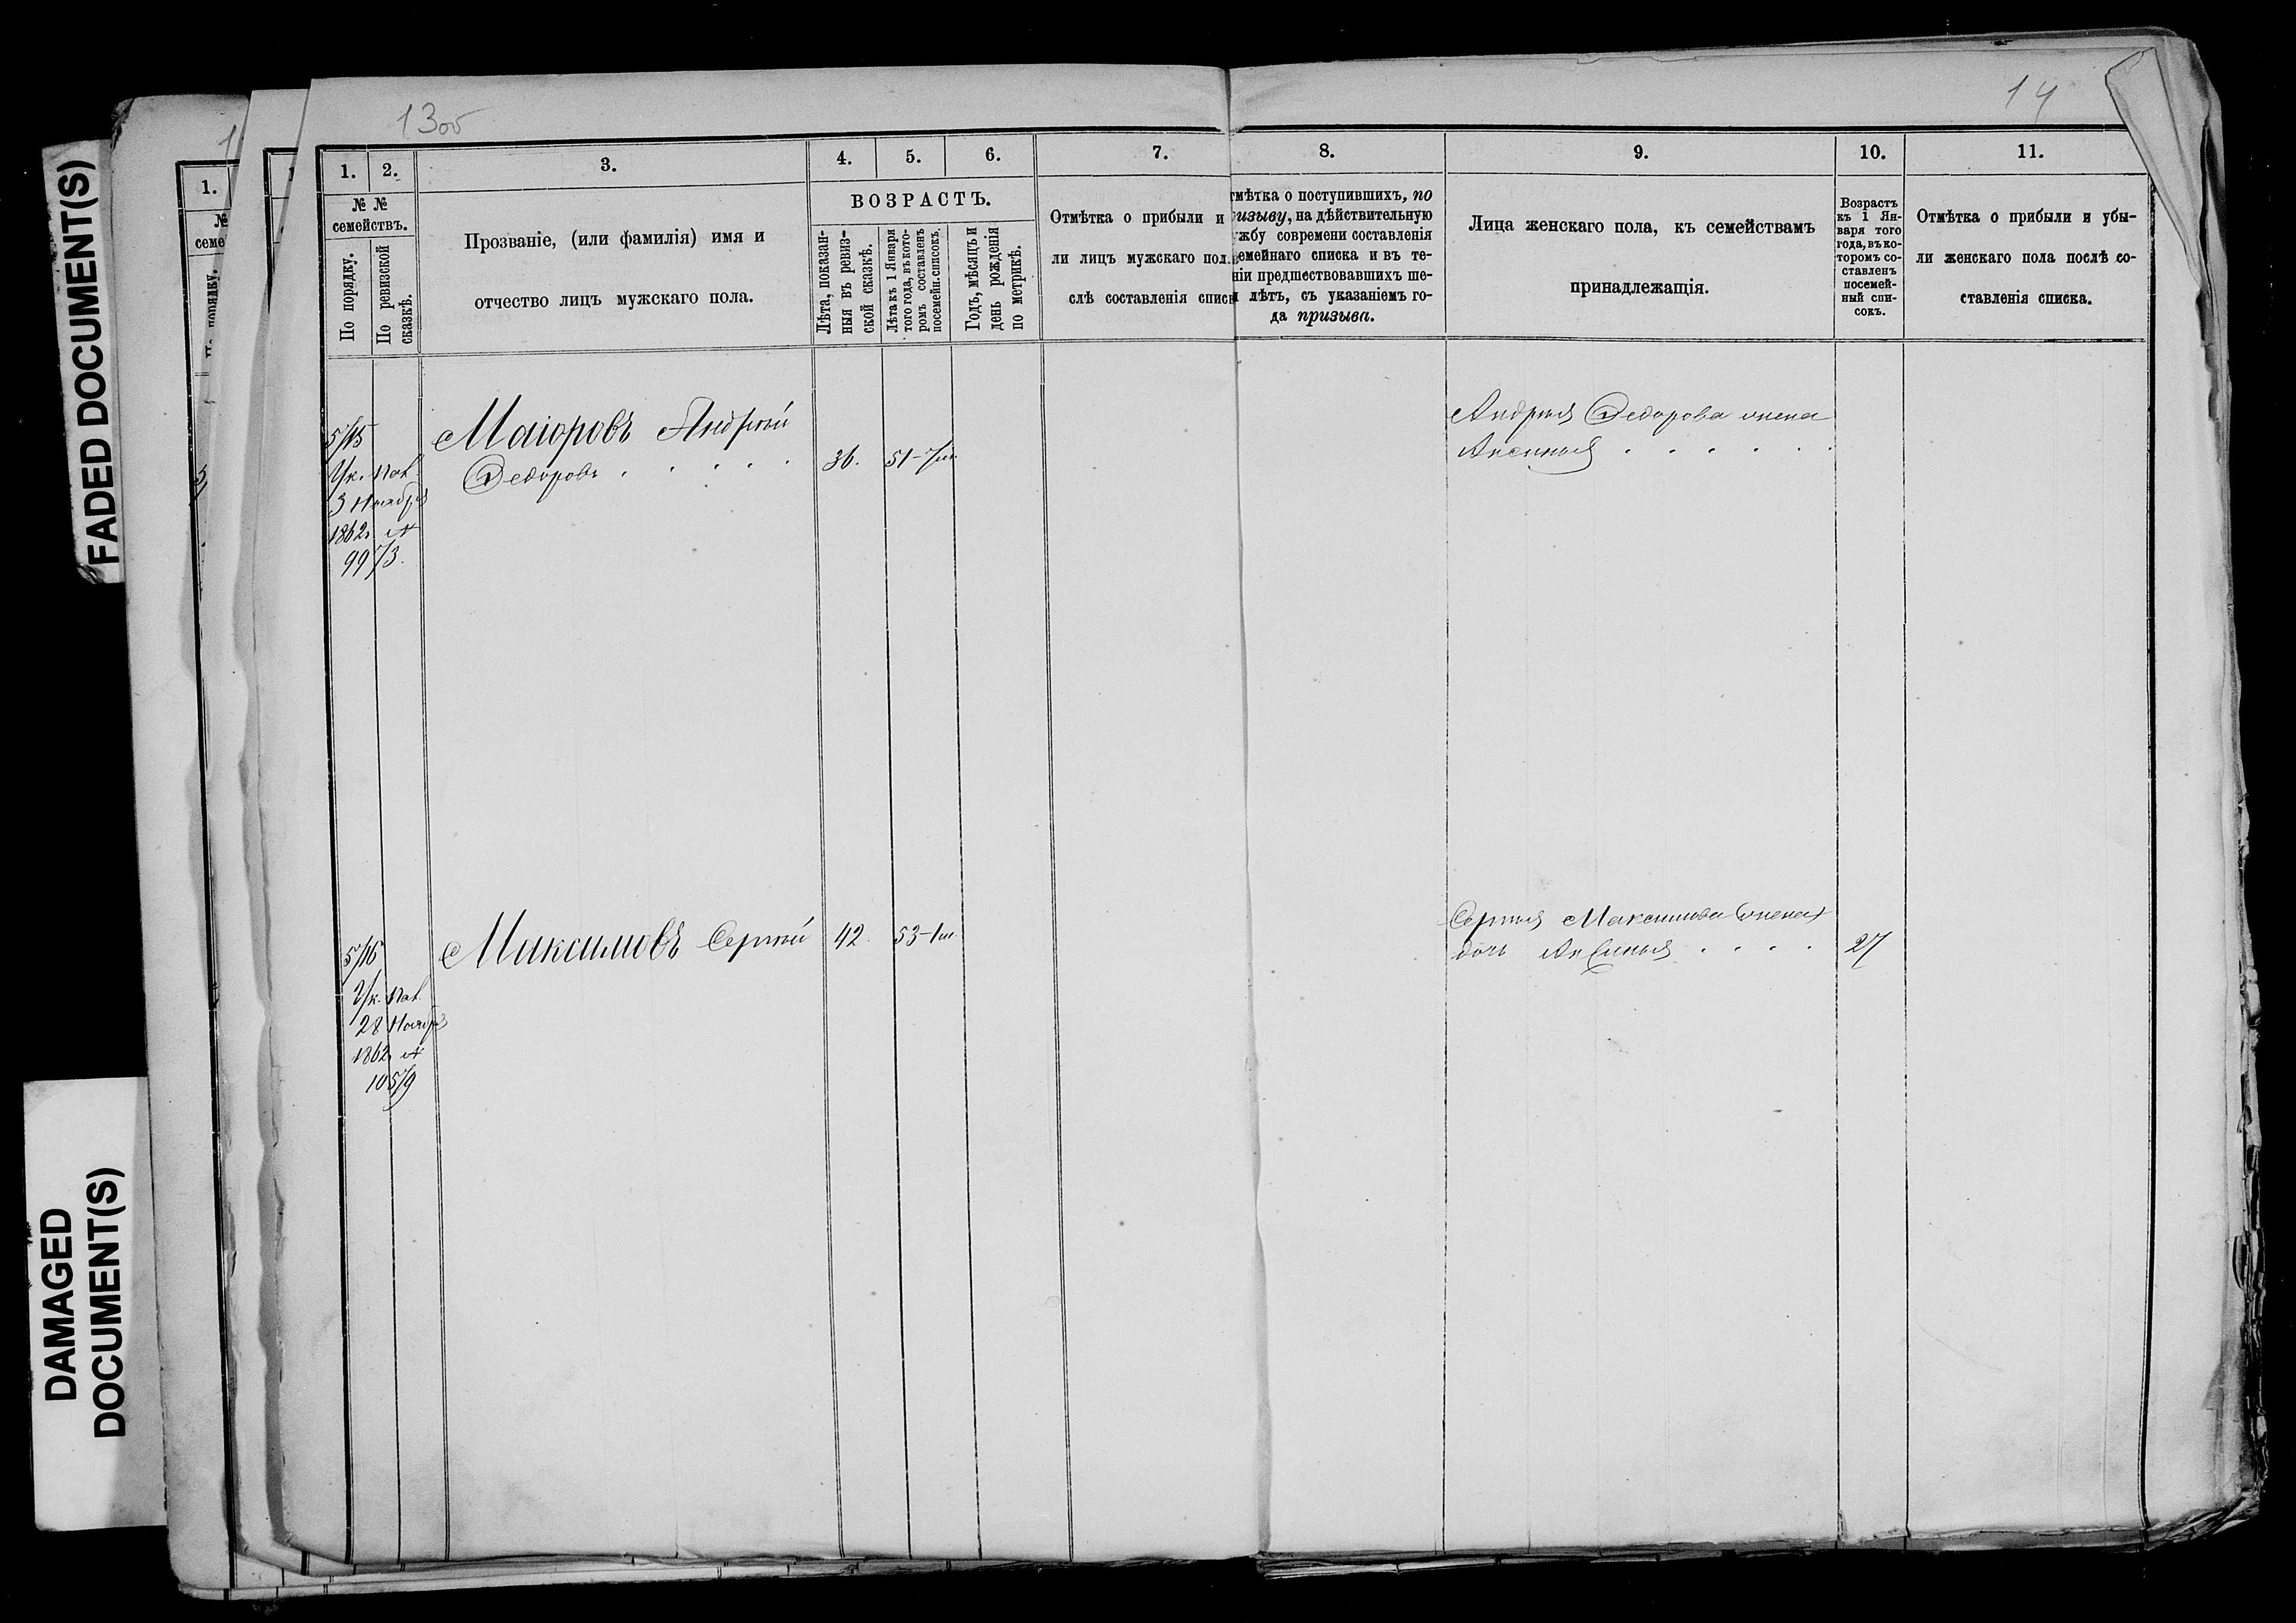 FADED DOCUMENT(S)
DAMAGED
DOCUMENT(S)
13об
14
1.
№
семе
1. 2. 3. 4. 5. 6. 7. 8. 9. 10. 11.
№ №
семействъ.
По порядку.
По ревизской
сказкѣ.
Прозваніе, (или фамилія) имя и
отчество лицъ мужскаго пола.
ВОЗРАСТЪ.
Лѣта, показан-
ныя въ ревиз-
ской сказкѣ.
Лѣта къ 1 Января
того года, въ кото-
ромъ составленъ
посемейн. списокъ.
Годъ, мѣсяцъ и
день рожденія
по метрикѣ.
Отмѣтка о прибыли и
ли лицъ мужскаго пол
слѣ составленія списк
тмѣтка о поступившихъ, по
изыву, на дѣйствительную
жбу современи составленія
емейнаго списка и въ те-
ніи предшествовавшихъ ше-
и лѣтъ, съ указаніемъ го-
да призыва.
Лица женскаго пола, къ семействамъ
принадлежащія.
Возрастъ
къ 1 Ян-
варя того
года, въ ко-
торомъ со-
ставленъ
посемей-
ный спи-
сокъ.
Отмѣтка о прибыли и убы-
ли женскаго пола послѣ со-
ставленія списка.
575
Ук. Пал.
3 Ноября
1862 г. №
9973.
Маіоровъ Андрей
Федоровъ . . . . . 36. 51-7м.
Андрея Федорова жена
Аксинья . . . . . .
576
Ук. Пал.
28 Ноября
1862 №
10579
Максимовъ Сергѣй 42. 53-1м
Сергѣя Максимова (жена)
дочь Аксинья . . . . 27